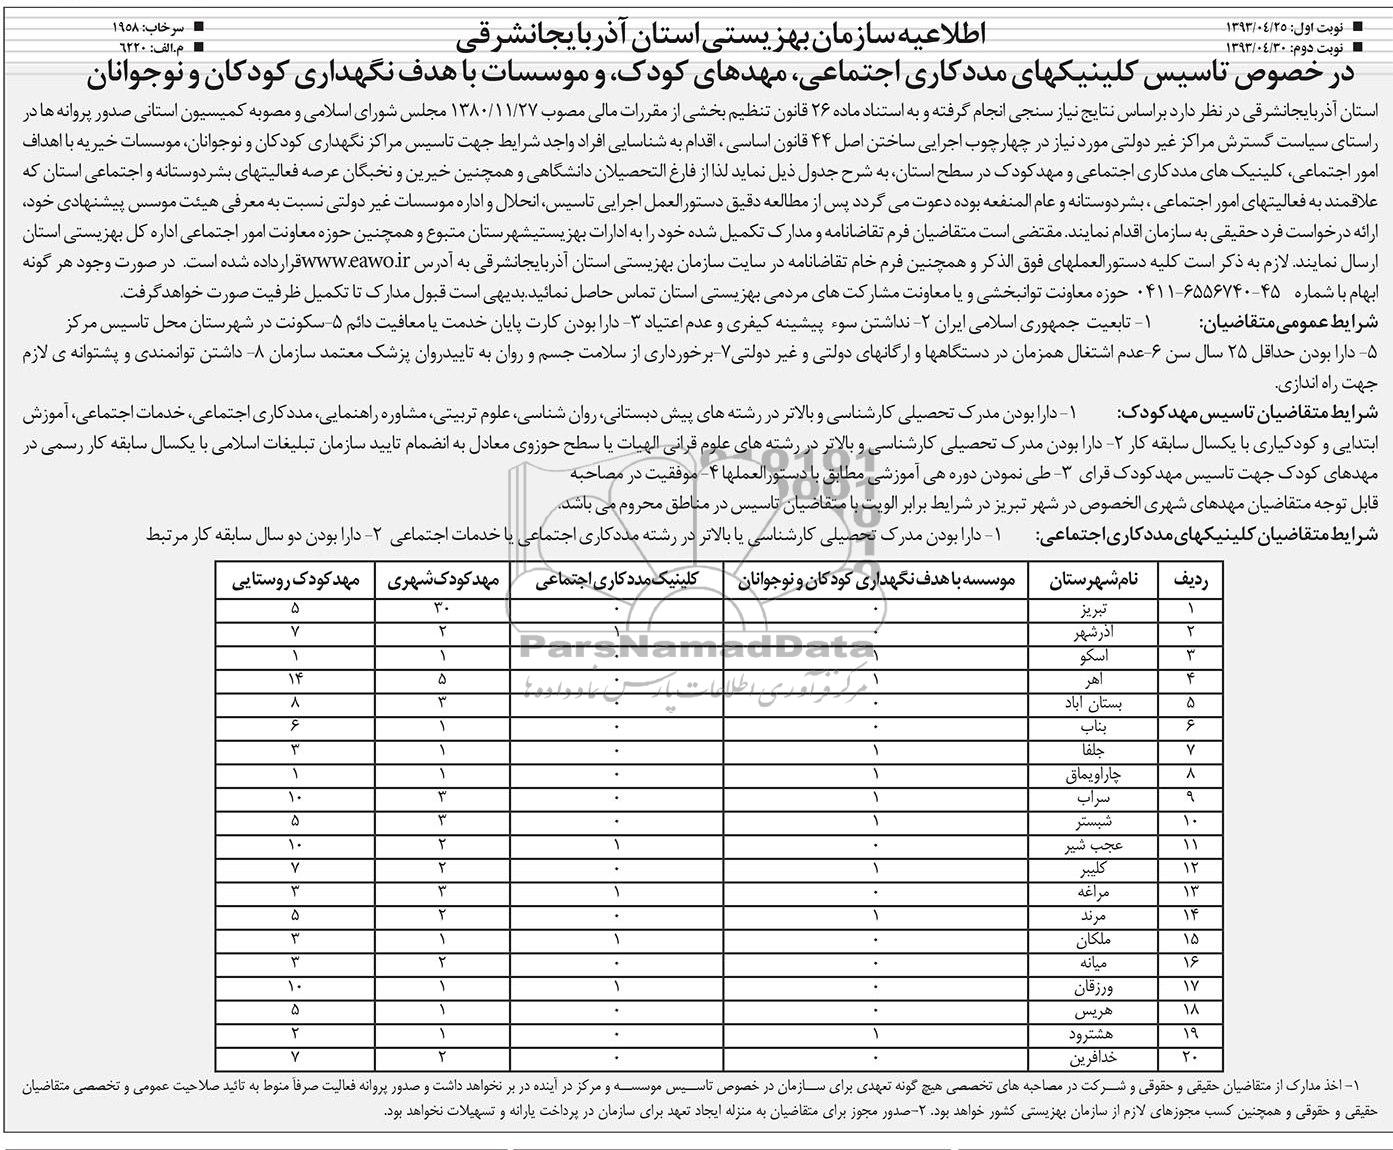 نوبت اول: ۱۳۹۳/۰۴/۲۵
نوبت دوم: ۱۳۹۳/۰۴/۳۰
اطلاعیه سازمان بهزیستی استان آذربایجانشرقی
سرخاب: ۱۹۵۸
م.الف: ۶۲۲۰
در خصوص تاسیس کلینیکهای مددکاری اجتماعی، مهدهای کودک، و موسسات با هدف نگهداری کودکان و نوجوانان
استان آذربایجانشرقی در نظر دارد براساس نتایج نیاز سنجی انجام گرفته و به استناد ماده ۲۶ قانون تنظیم بخشی از مقررات مالی مصوب ۱۳۸۰/۱۱/۲۷ مجلس شورای اسلامی و مصوبه کمیسیون استانی صدور پروانه ها در
راستای سیاست گسترش مراکز غیر دولتی مورد نیاز در چهارچوب اجرایی ساختن اصل ۴۴ قانون اساسی ، اقدام به شناسایی افراد واجد شرایط جهت تاسیس مراکز نگهداری کودکان و نوجوانان، موسسات خیریه با اهداف
امور اجتماعی، کلینیک های مددکاری اجتماعی و مهدکودک در سطح استان، به شرح جدول ذیل نماید لذا از فارغ التحصیلان دانشگاهی و همچنین خیرین و نخبگان عرصه فعالیتهای بشردوستانه و اجتماعی استان که
علاقمند به فعالیتهای امور اجتماعی ، بشردوستانه و عام المنفعه بوده دعوت می گردد پس از مطالعه دقیق دستورالعمل اجرایی تاسیس، انحلال و اداره موسسات غیر دولتی نسبت به معرفی هیئت موسس پیشنهادی خود،
ارائه درخواست فرد حقیقی به سازمان اقدام نمایند. مقتضی است متقاضیان فرم تقاضانامه و مدارک تکمیل شده خود را به ادارات بهزیستیشهرستان متبوع و همچنین حوزه معاونت امور اجتماعی اداره کل بهزیستی استان
ارسال نمایند. لازم به ذکر است کلیه دستورالعملهای فوق الذکر و همچنین فرم خام تقاضانامه در سایت سازمان بهزیستی استان آذربایجانشرقی به آدرس www.eawo.irقرارداده شده است. در صورت وجود هر گونه
ابهام با شماره ۴۵-۶۵۵۶۷۴۰-۰۴۱۱ حوزه معاونت توانبخشی و یا معاونت مشارکت های مردمی بهزیستی استان تماس حاصل نمائید.بدیهی است قبول مدارک تا تکمیل ظرفیت صورت خواهدگرفت.
شرایط عمومی متقاضیان: ۱- تابعیت جمهوری اسلامی ایران ۲- نداشتن سوء پیشینه کیفری و عدم اعتیاد ۳- دارا بودن کارت پایان خدمت یا معافیت دائم ۵-سکونت در شهرستان محل تاسیس مرکز
۵- دارا بودن حداقل ۲۵ سال سن ۶-عدم اشتغال همزمان در دستگاهها و ارگانهای دولتی و غیر دولتی۷-برخورداری از سلامت جسم و روان به تاییدروان پزشک معتمد سازمان ۸- داشتن توانمندی و پشتوانه ی لازم
جهت راه اندازی.
شرایط متقاضیان تاسیس مهدکودک: ۱-دارا بودن مدرک تحصیلی کارشناسی و بالاتر در رشته های پیش دبستانی، روان شناسی، علوم تربیتی، مشاوره راهنمایی، مددکاری اجتماعی، خدمات اجتماعی، آموزش
ابتدایی و کودکیاری با یکسال سابقه کار ۲- دارا بودن مدرک تحصیلی کارشناسی و بالاتر در رشته های علوم قرانی الهیات یا سطح حوزوی معادل به انضمام تایید سازمان تبلیغات اسلامی با یکسال سابقه کار رسمی در
مهدهای کودک جهت تاسیس مهدکودک قرای ۳- طی نمودن دوره هی آموزشی مطابق با دستورالعملها ۴-موفقیت در مصاحبه
قابل توجه متقاضیان مهدهای شهری الخصوص در شهر تبریز در شرایط برابر الویت با متقاضیان تاسیس در مناطق محروم می باشد.
شرایط متقاضیان کلینیکهای مددکاری اجتماعی: ۱- دارا بودن مدرک تحصیلی کارشناسی یا بالاتر در رشته مددکاری اجتماعی یا خدمات اجتماعی ۲- دارا بودن دو سال سابقه کار مرتبط
ردیف نام شهرستان موسسه با هدف نگهداری کودکان و نوجوانان کلینیک مددکاری اجتماعی مهدکودک شهری مهدکودک روستایی
۱ تبریز ۰ ۰ ۳۰ ۵
۲ آذرشهر ۰ ۱ ۲ ۷
۳ اسکو ۱ ۰ ۱ ۱
۴ اهر ۱ ۰ ۵ ۱۴
۵ بستان آباد ۰ ۰ ۳ ۸
۶ بناب ۰ ۰ ۱ ۶
۷ جلفا ۱ ۰ ۱ ۳
۸ چاراویماق ۱ ۰ ۱ ۱
۹ سراب ۱ ۰ ۳ ۱۰
۱۰ شبستر ۱ ۰ ۳ ۵
۱۱ عجب شیر ۰ ۱ ۲ ۱۰
۱۲ کلیبر ۱ ۰ ۲ ۷
۱۳ مراغه ۰ ۱ ۳ ۳
۱۴ مرند ۱ ۰ ۲ ۵
۱۵ ملکان ۰ ۱ ۱ ۳
۱۶ میانه ۰ ۰ ۲ ۳
۱۷ ورزقان ۰ ۱ ۱ ۱۰
۱۸ هریس ۰ ۰ ۱ ۵
۱۹ هشترود ۱ ۰ ۱ ۲
۲۰ خدافرین ۰ ۰ ۲ ۷
ParsNamadData
مرکز فرآوری اطلاعات پارس نماد داده ها
۱- اخذ مدارک از متقاضیان حقیقی و حقوقی و شرکت در مصاحبه های تخصصی هیچ گونه تعهدی برای سازمان در خصوص تاسیس موسسه و مرکز در آینده در بر نخواهد داشت و صدور پروانه فعالیت صرفاً منوط به تائید صلاحیت عمومی و تخصصی متقاضیان
حقیقی و حقوقی و همچنین کسب مجوزهای لازم از سازمان بهزیستی کشور خواهد بود. ۲-صدور مجوز برای متقاضیان به منزله ایجاد تعهد برای سازمان در پرداخت یارانه و تسهیلات نخواهد بود.